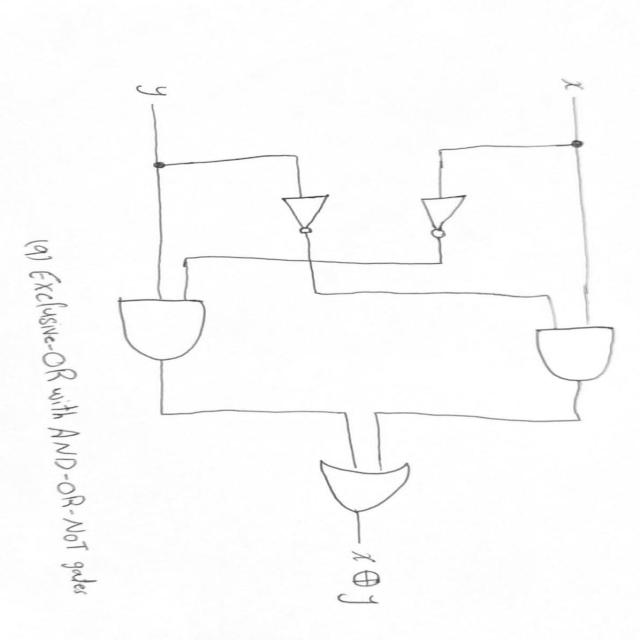 x
y
x ⊕ y
(a) Exclusive-OR with AND-OR-NOT gates